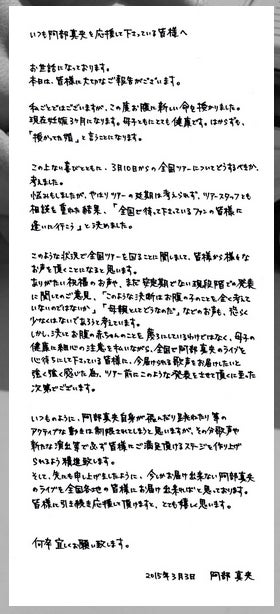 いつも阿部真央を応援して下さっている皆様へ
お世話になっております。
本日は、皆様に大切なご報告がございます。
私ごとではございますが、この度お腹に新しい命を授かりました。
現在妊娠3ヶ月になります。母子ともにとても健康です。はからずも、
「授かった婚」と言うことになります。
この上ない喜びとともに、3月10日からの全国ツアーについてどうするべきか、
考えました。
悩みもしましたが、やはりツアーの延期は考えられず、ツアースタッフとも
相談を重ねた結果、「全国で待って下さっているファンの皆様に
逢いに行こう」と決めました。
このような状況で全国ツアーを回ることに関しまして、皆様から様々な
お声を頂くことになると思います。
ありがたい祝福のお声や、まだ安定期でない現段階での発表
に関してのご意見、「このような決断はお腹の子のことを全く考えて
いないのではないか」「母親としてどうなのだ」などのお声も、恐らく
少なくはないであろうと考えています。
しかし、決してお腹の赤ちゃんのことを蔑ろにしているわけではなく、母子の
健康に細心の注意を払いながら、全国で阿部真央のライブを
心待ちにして下さっている皆様に、今届けられる歌声をお届けしたいと
強く強く感じた為、ツアー前にこのような発表をさせて頂くに至った
次第でございます。
いつものように、阿部真央自身が飛んだり跳ねたり等の
アクティブな動きは制限されてしまうと思いますが、その分歌声や
新たな演出等で必ず皆様にご満足頂けるステージを作り上げ
られるよう精進致します。
そして、先にも申し上げましたように、今しかお届け出来ない阿部真央
のライブを全国各地の皆様にお届け出来ればと思っております。
皆様に引き続き応援して頂けますと、とても嬉しく思います。
何卒宜しくお願い致します。
2015年3月3日 阿部真央